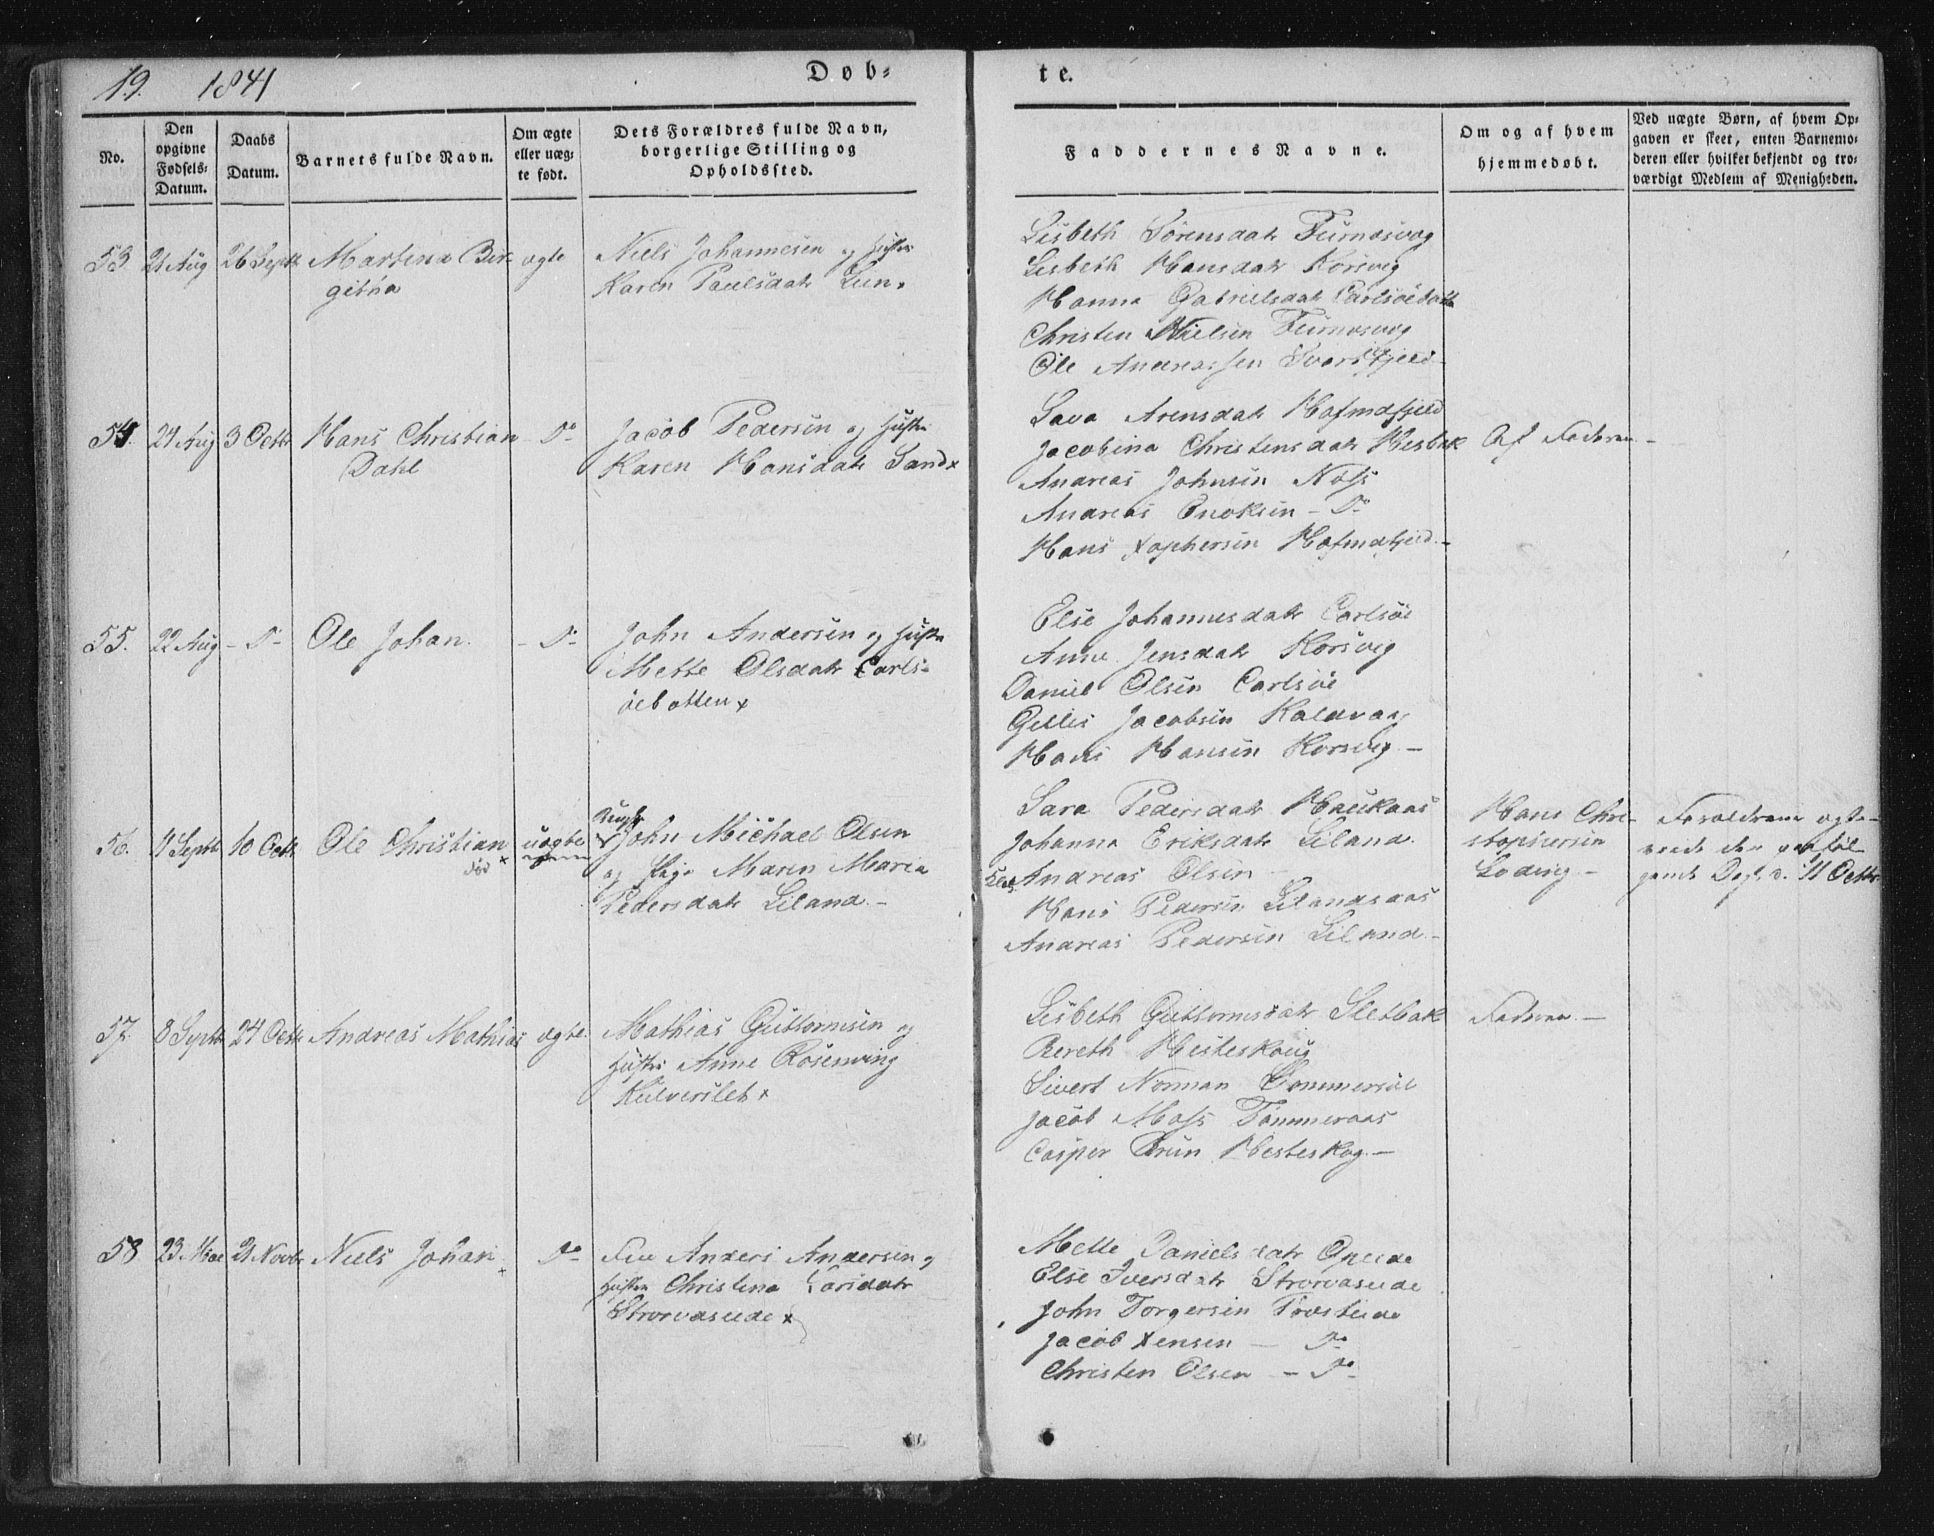 19. 1841
Døb-
te.
No.
Den opgivne Fødsels-Datum.
Daabs Datum.
Barnets fulde Navn.
Om ægte eller uæg-te født.
Dets Forældres fulde Navn, borgerlige Stilling og Opholdssted.
Faddernes Navne.
Om og af hvem hjemmedøbt.
Ved uægte Børn, af hvem Op-gaven er skeet, enten Barnemo-deren eller hvilket bekjendt og tro-værdigt Medlem af Menigheden.
53. 21 Aug 26 Septr Martina Bir- ægte
githa
Niels Johannesen og
Karen Paulsdatr Lun
Lisbeth Sørensdatr Furnæsvog
Lisbeth Hansdatr Korsvig
Hanna Gabrielsdatr
Christen Nielsen Furnæsvog
Ole Andreassen Svartfjeld
54. 24 Aug 3 Octbr Hans Christian Do
Dahl
Jacob Pedersen og Hustru
Karen Hansdatr Sand x
Arensdatr
Jacobina Christensdatr Hesbak
Andreas Johnsen
Andreas Enoksen - Do
Hans Xophersen
Af Faderen
55. 22 Aug - Do Ole Johan. - Do
John Andersen og Hustru
Mette Olsdatr Carls-
øebotten x
Else Johannesdatr Carlsøe
Anne Jensdatr Korsvig
Daniel Olsen Carlsøe
Jacobsen Kaldvaag
Hans Hansen Korsvig -
56. 4 Septr 10 Octr Ole Christian uægte
død x
John Michael Olsen
og Pige Maren Maria
Pedersdatr Liland -
Sara Pedersdatr Haukaas
Johanna Eriksdatr Liland
Andreas Olsen -
Hans Pedersen Lilandsaas
Andreas Pedersen Liland -
Hans Chri-
stophersen
Løding -
Forældrene ægte-
viede den paaføl-
gende Dag, d. 11 Octbr
57. 8 Septr 24 Octr Andreas Mathias ægte
Mathias Guttormsen og
Hustru Anne Rosenving
Kulverslet x
Lisbeth Guttormsdatr Sletbak
Bereth Hesteskoug
Sivert Norman Sommersøe
Jacob Moss Tømmeraas
Casper Brun Hesteskog -
Faderen -
58 23 21 Novbr Niels Johan x Do
Anders Andersen og
Hustru Christina Larsdatr
Storvaseide x
Mette Danielsdatr
Else Iversdatr Storvaseide
John Torgersen
Jacob Jensen - Do
Christen Olsen - Do